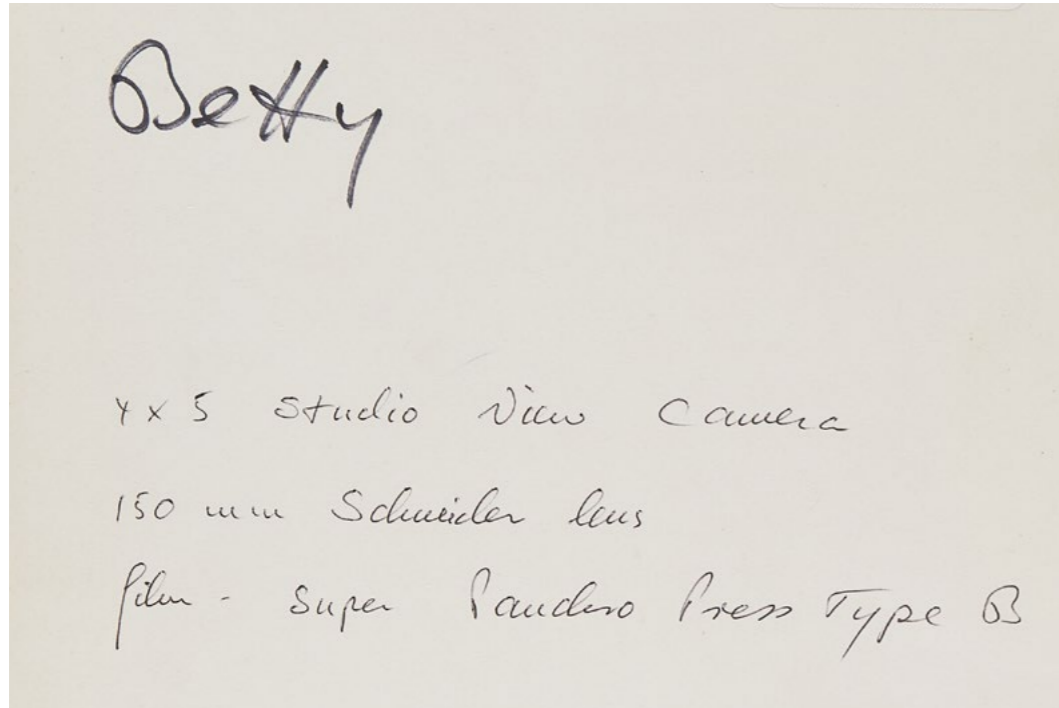 Betty
4x5 Studio View Camera
150 mm Schneider lens
film - Super Panchro Press Type B